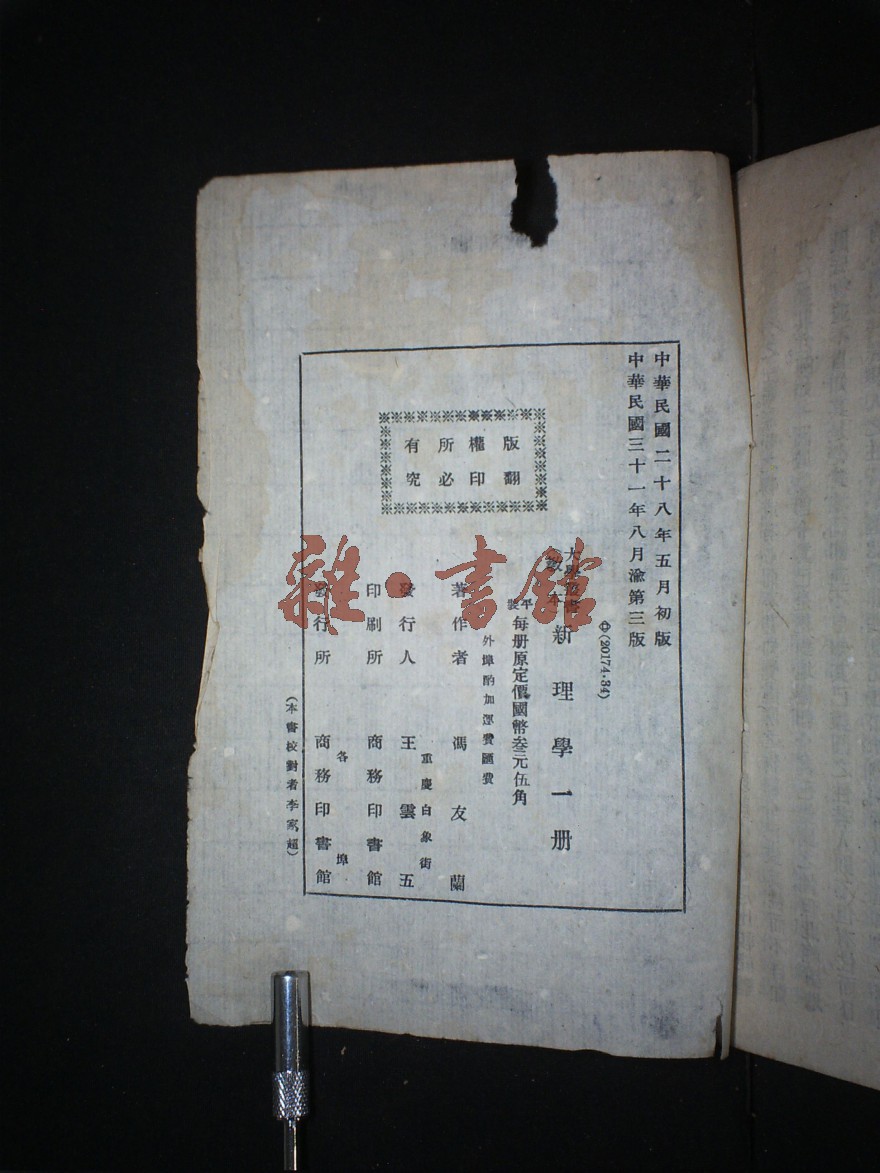 中華民國二十八年五月初版
中華民國三十一年八月渝第三版
㊥(20174·34)
大學叢書
教本
新理學一册
平裝
每册原定價國幣叁元伍角
外埠酌加運費匯費
著作者 馮友蘭
重慶白象街
發行人 王雲五
印刷所 商務印書館
各埠
發行所 商務印書館
版權所有
翻印必究
(本書校對者李家超)
雜·書館